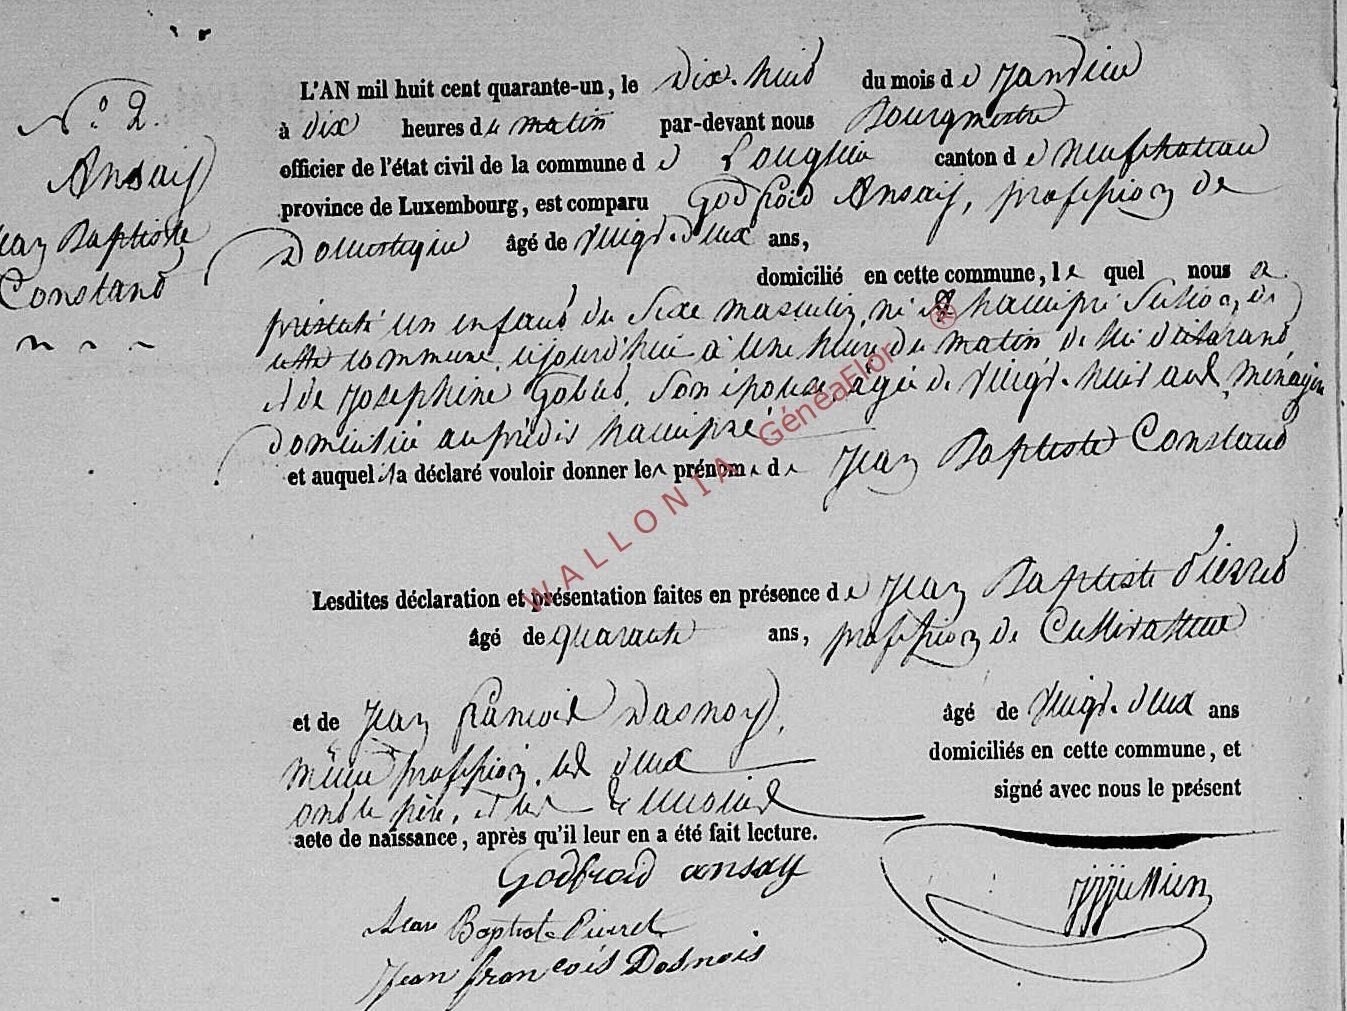 N.° 2.
Ansaÿ
Jean Baptiste
Constant
L'AN mil huit cent quarante-un, le Dix-huit du mois de Janvier
à Dix heures du matin par-devant nous Bourgmestre
officier de l'état civil de la commune de Longlier canton de neufchateau
province de Luxembourg, est comparu Godfroid Ansaÿ, profession de
Domestique âgé de vingt-deux ans,
domicilié en cette commune, lequel nous a
présenté un enfant du Sexe masculin, né à hamipré Section de
cette commune, aujourd'hui à une heure du matin de lui déclarant,
et de Josephine Gobert, Son épouse, agée de vingt-huit ans, ménagère
domiciliée au prédit hamipré
et auquel il a déclaré vouloir donner les prénoms de Jean Baptiste Constant
Lesdites déclaration et présentation faites en présence de Jean Baptiste Pierret
âgé de quarante ans, profession de Cultivateur
et de Jean francois Dasnoÿ, âgé de vingt-deux ans
même profession, domiciliés en cette commune, et
ont le père, et les témoins signé avec nous le présent
acte de naissance, après qu'il leur en a été fait lecture.
Godfroid ansay
Jean Baptiste Pierret
Jean françois Dasnois
WALLONIA GénéaFlor ®